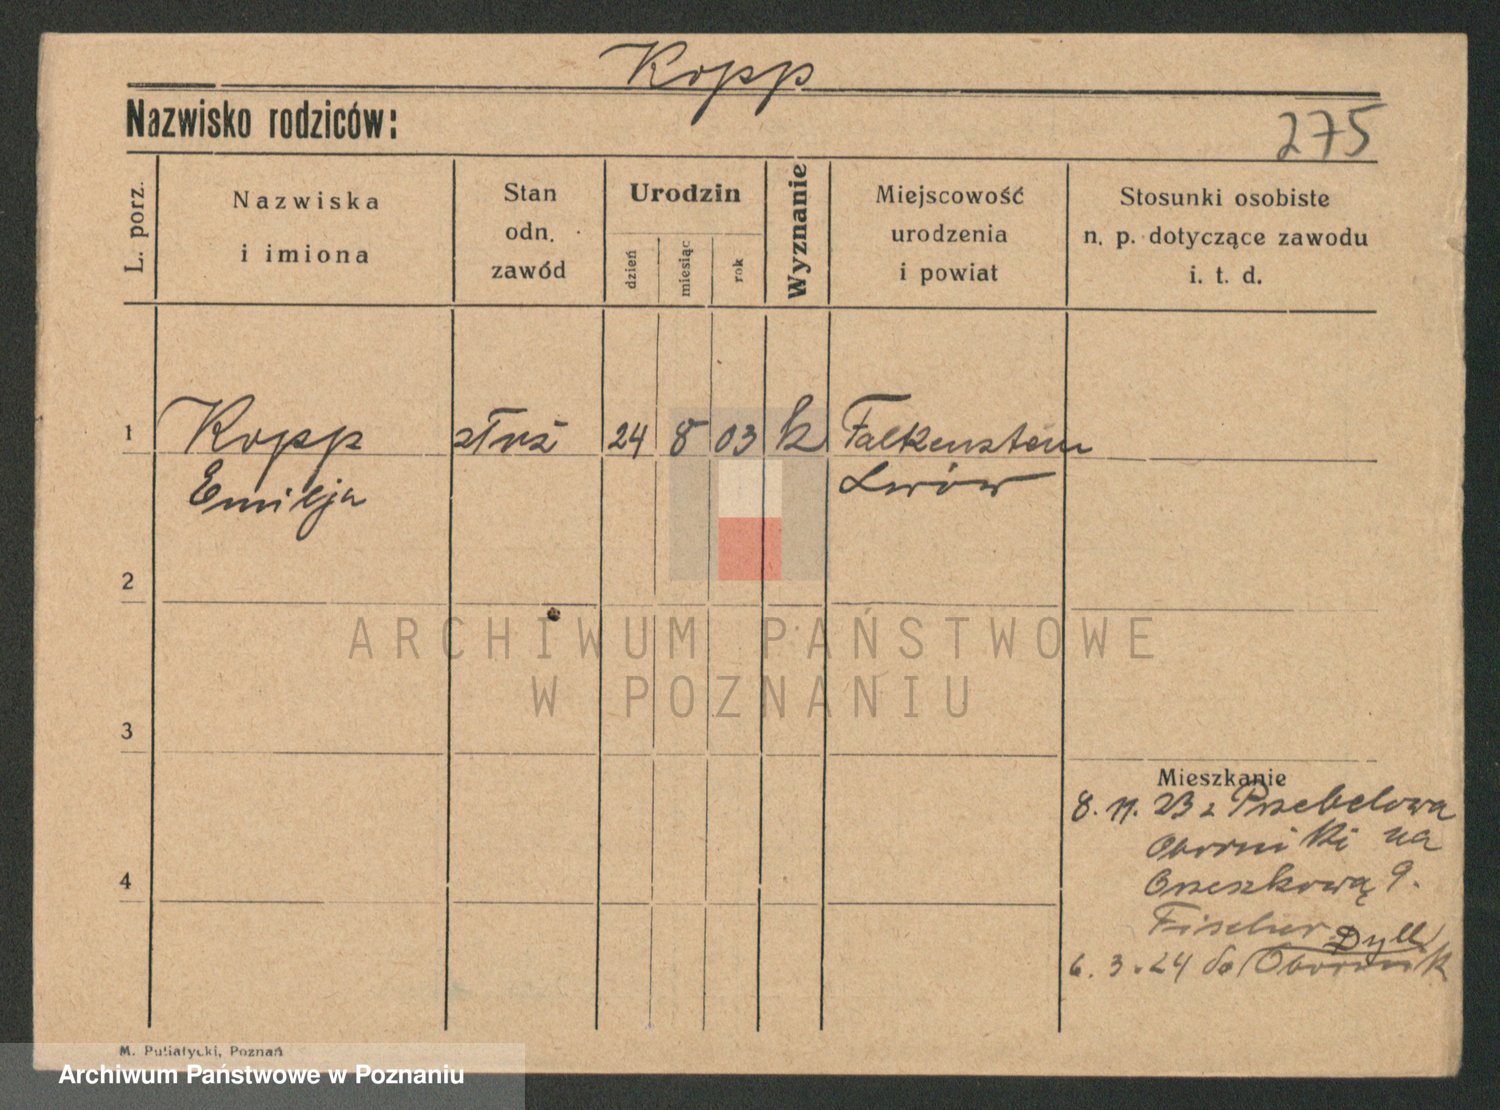 Kopp
Nazwisko rodziców:
275
L. porz.
Nazwiska
i imiona
Stan
odn.
zawód
Urodzin
dzień
miesiąc
rok
Wyznanie
Miejscowość
urodzenia
i powiat
Stosunki osobiste
n. p. dotyczące zawodu
i. t. d.
1
Kopp
24
8
03
k
Falkenstein
Emilja
Lwów
2
ARCHIWUM PAŃSTWOWE
W POZNANIU
3
Mieszkanie
8. 11. 23 z
Oborniki na
9.
Fischer
6. 3. 24 do Obornik
4
M. Putiatycki, Poznań
Archiwum Państwowe w Poznaniu